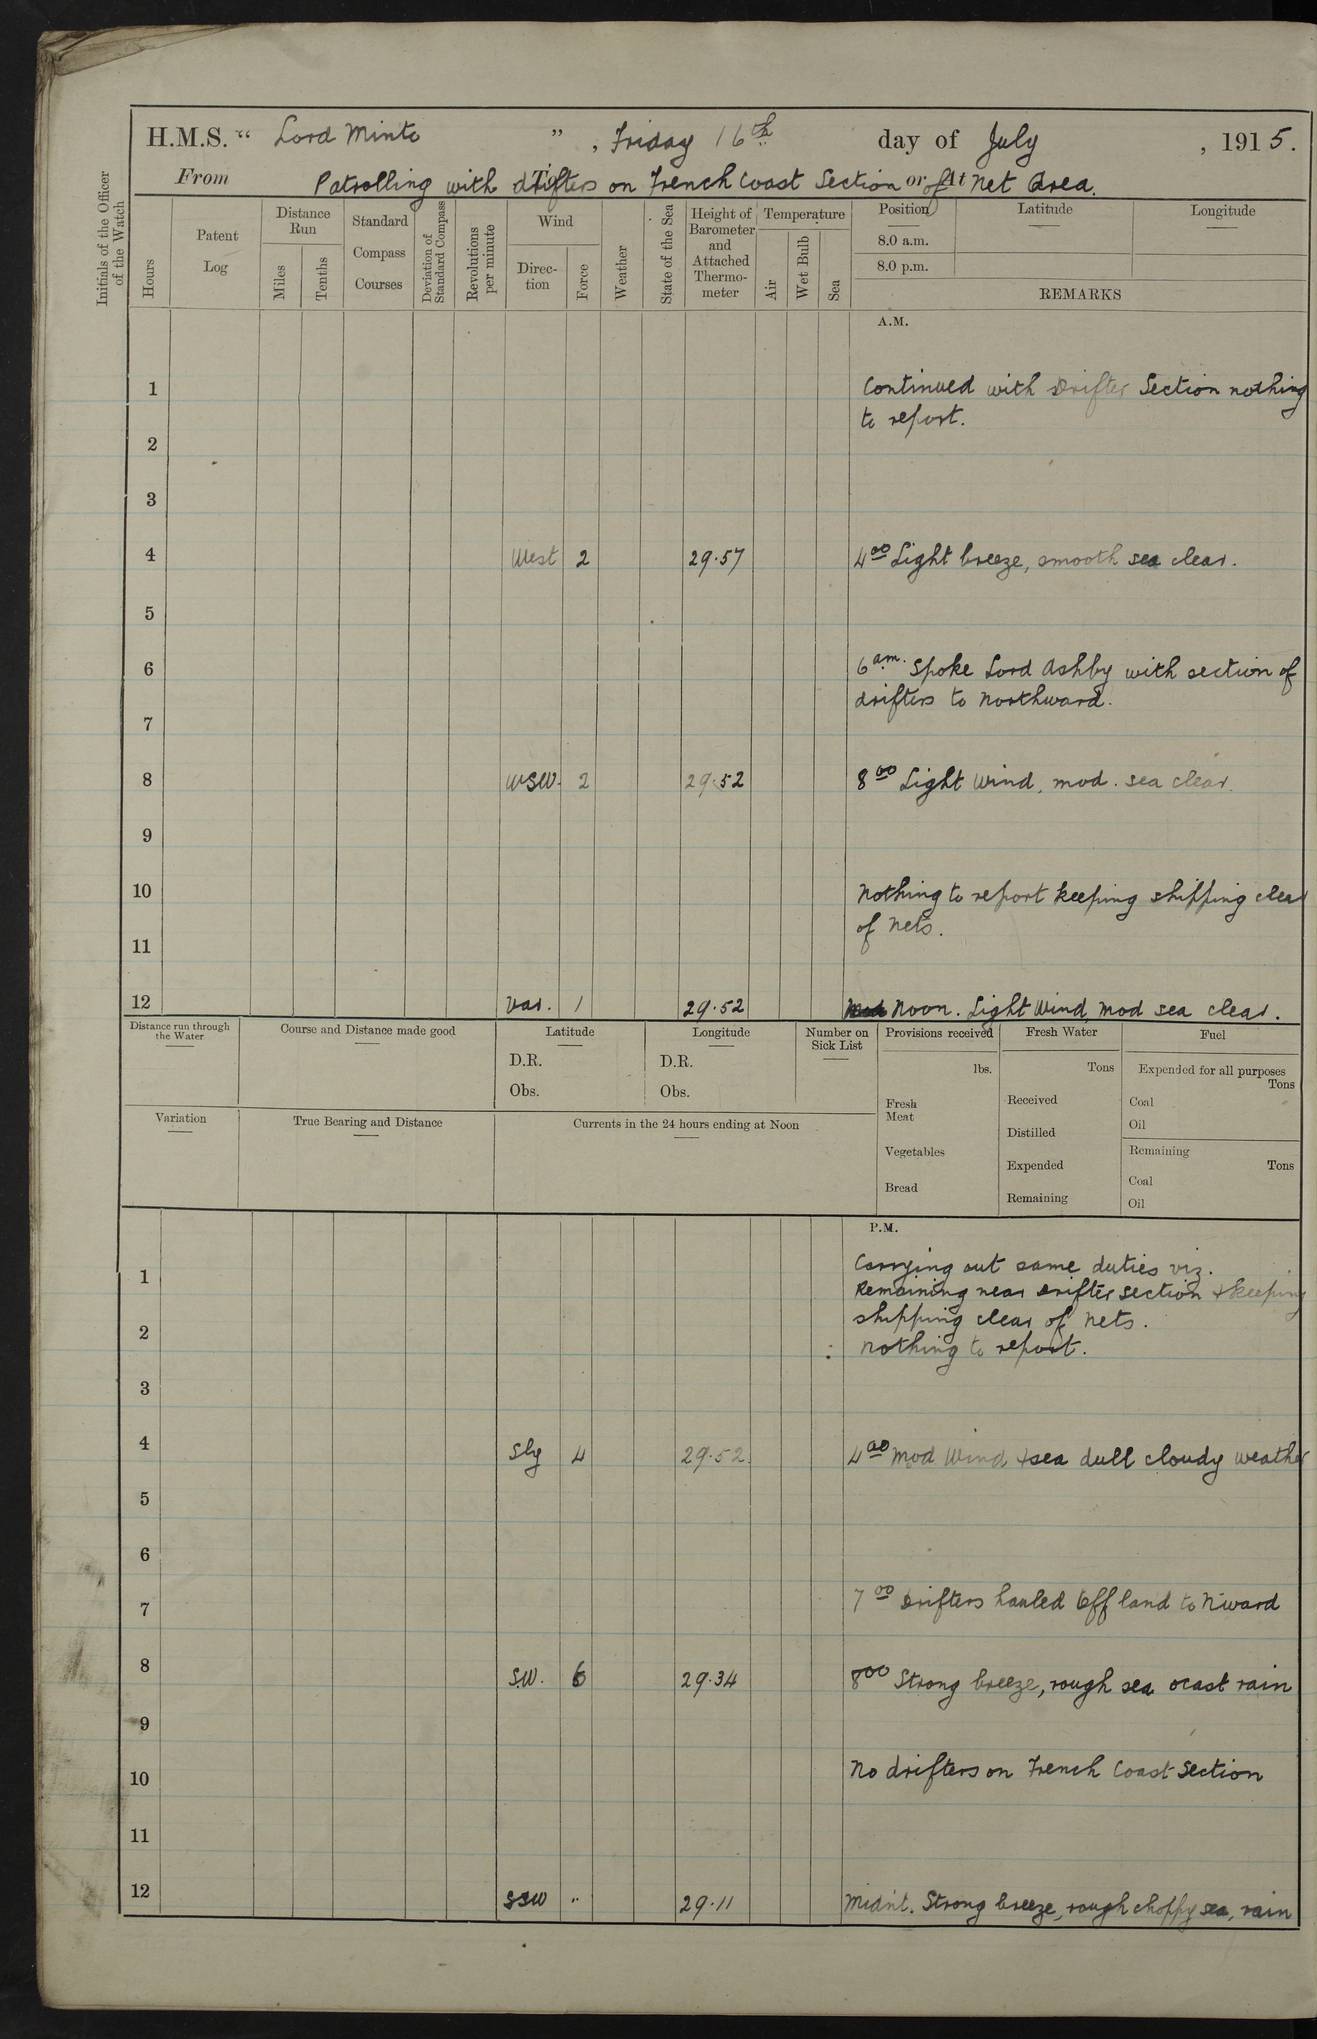 H.M.S. “ Lord Minto ” , Friday 16th day of July , 1915.
From Patrolling with drifters on French Coast Section or of At Net Area.
Initials of the Officer of the Watch
Hours
Patent Log
Distance Run
Miles
Tenths
Standard Compass Courses
Deviation of Standard Compass
Revolutions per minute
Wind
Direc-tion
Force
Weather
State of the Sea
Height of Barometer and Attached Thermo-meter
Temperature
Air
Wet Bulb
Sea
Position
Latitude
Longitude
8.0 a.m.
8.0 p.m.
REMARKS
A.M.
1 Continued with Drifter Section nothing
to report.
2
3
4 West 2 29·57 4 00 Light breeze, smooth sea clear.
5
6 6 am. Spoke Lord Ashby with section of
drifters to Northward.
7
8 WSW. 2 29·52 8 00 Light Wind, mod. sea clear.
9
10 Nothing to report keeping shipping clear
of nets.
11
12 Var. 1 29·52 Noon. Light Wind, mod sea clear.
Distance run through the Water
Course and Distance made good
Latitude
D.R.
Obs.
Longitude
D.R.
Obs.
Number on Sick List
Provisions received
lbs.
Fresh Meat
Vegetables
Bread
Fresh Water
Tons
Received
Distilled
Expended
Remaining
Fuel
Expended for all purposes
Tons
Coal
Oil
Remaining
Tons
Coal
Oil
Variation
True Bearing and Distance
Currents in the 24 hours ending at Noon
P.M.
Carrying out same duties viz.
1 Remaining near Drifter section & keeping
shipping clear of nets.
2 : Nothing to report.
3
4 Sly 4 29·52 4 00 Mod Wind & sea dull cloudy weather
5
6
7 7 00 Drifters hauled Off land to N'ward
8 S.W. 6 29·34 8 00 Strong breeze, rough sea ocast rain
9
10 No drifters on French Coast Section
11
12 SSW " 29·11 Midn't. Strong breeze, rough choppy sea, rain